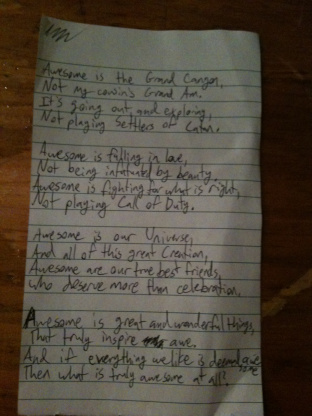 Awesome is the Grand Canyon,
Not my cousin's Grand Am.
It's going out and exploring,
Not playing Settlers of Catan.
Awesome is falling in love,
Not being infatuated by beauty,
Awesome is fighting for what is right,
Not playing Call of Duty.
Awesome is our Universe,
And all of this great Creation,
Awesome are our true best friends,
Who deserve more than celebration,
Awesome is great and wonderful things,
That truly inspire awe.
And if everything we like is deemed awesome
Then what is truly awesome at all?